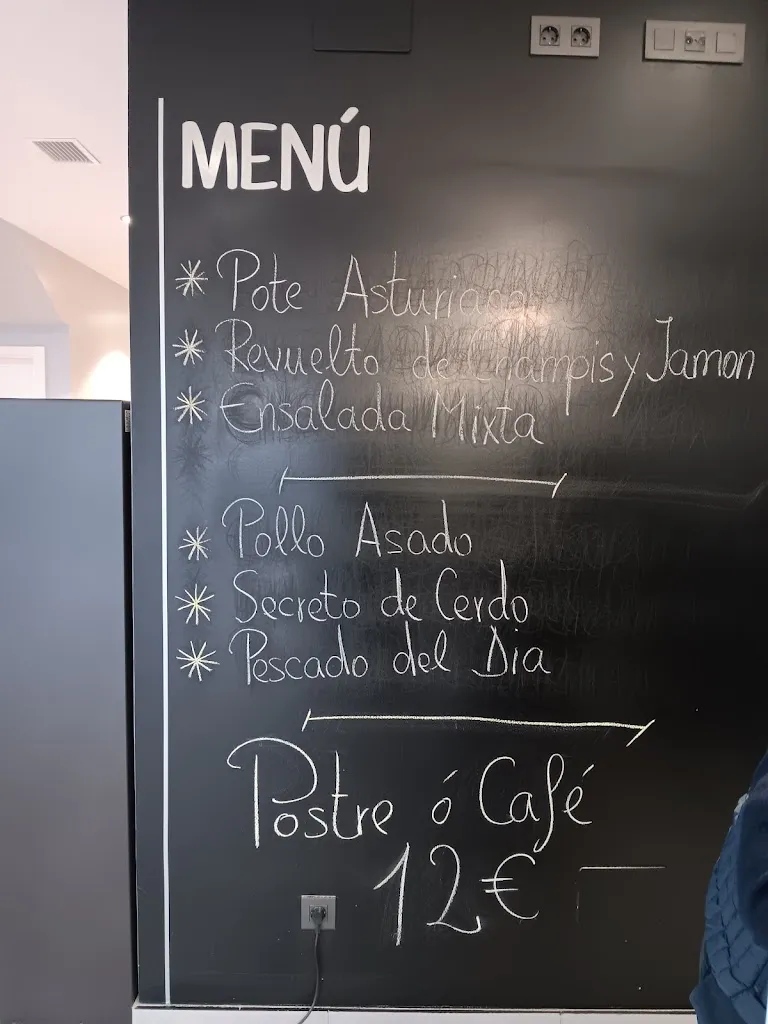 MENÚ
* Pote Asturiano
* Revuelto de Champis y Jamon
* Ensalada Mixta
* Pollo Asado
* Secreto de Cerdo
* Pescado del Dia
Postre ó Café
12€